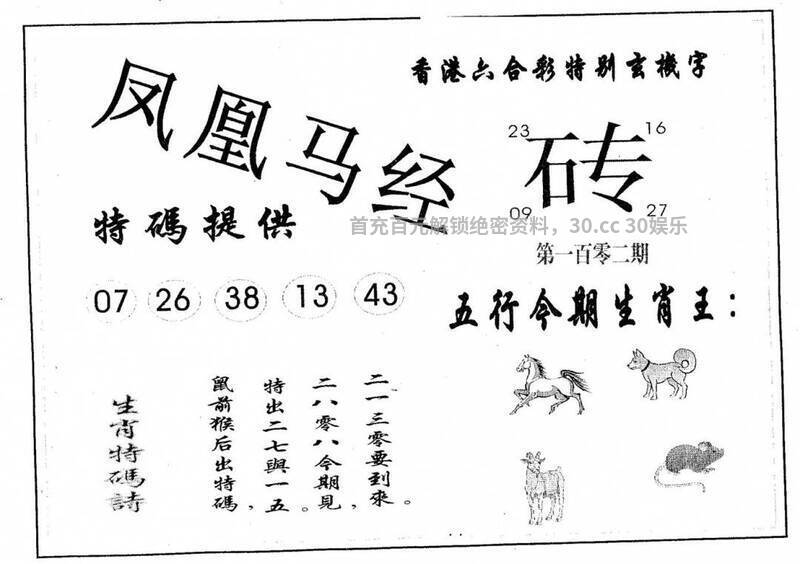 香港六合彩特别玄機字
凤凰马经
23
16
砖
09
27
特碼提供
首充百元解锁绝密资料，30.cc 30娱乐
第一百零二期
07 26 38 13 43
五行今期生肖王：
二一三零要到來。
二八零八今期見，
特出二七與一五。
鼠前猴后出特碼，
生肖特碼詩